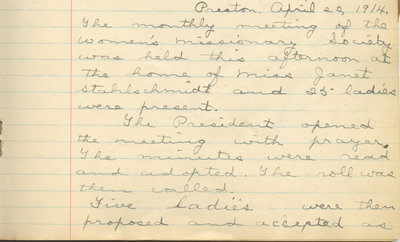 Preston. April 22 1914.
The monthly meeting of the
Women's Missionary Society
was held this afternoon at
the home of Miss Janet
Stahlschmidt and 25 ladies
were present.
The President opened
the meeting with prayer.
The minutes were read
and adopted. The roll was
then called.
Five ladies were then
proposed and accepted as